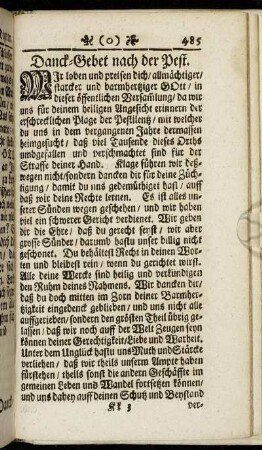 (o) 485
Danck-Gebet nach der Pest.
WJr loben und preisen dich/ allmächtiger/
starcker und barmhertziger GOtt / in
dieser öffentlichen Versam̃lung/ da wir
uns für deinem heiligen Angesicht erinnern der
erschrecklichen Plage der Pestilentz / mit welcher
du uns in dem vergangenen Jahre dermassen
heimgesucht/ daß viel Tausende dieses Orths
umbgefallen und verschmachtet sind für der
Straffe deiner Hand. Klage führen wir deß-
wegen nicht/sondern dancken dir für deine Züch-
tigung / damit du uns gedemüthiget hast / auff
daß wir deine Rechte lernen. Es ist alles un-
serer Sünden wegen geschehen / und wir haben
viel ein schwerer Gericht verdienet. Wir geben
dir die Ehre/ daß du gerecht seyst / wir aber
grosse Sünder / darumb hastu unser billig nicht
geschonet. Du behältest Recht in deinen Wor-
ten und bleibest rein / wenn du gerichtet wirst.
Alle deine Wercke sind heilig und verkündigen
den Ruhm deines Nahmens. Wir dancken dir/
daß du doch mitten im Zorn deiner Barmher-
tzigkeit eingedenck geblieben / und uns nicht alle
auffgerieben/sondern den grösten Theil übrig ge-
lassen/ daß wir noch auff der Welt Zeugen seyn
können deiner Gerechtigkeit/Liebe und Warheit.
Unter dem Unglück hastu uns Muth und Stärcke
verliehen / daß wir theils unserm Ampte haben
fürstehen / theils sonst die andere Geschäffte im
gemeinen Leben und Wandel fortsetzen können/
und uns dabey auff deinen Schutz und Beystand
Kk 3 ver-